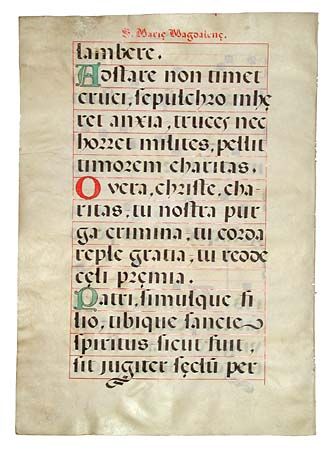 S. Marię Magdalenę.
lambere.
Aostare non timet
cruci, sepulchro inhę
ret anxia, truces nec
horret milites, pellit
timorem charitas.
O vera, christe, cha-
ritas, tu nostra pur
ga crimina, tu corda
reple gratia, tu redde
cęli pręmia.
Patri, simulque fi
lio, tibique sancte
spiritus sicut fuit,
sit jugiter sęclũ per